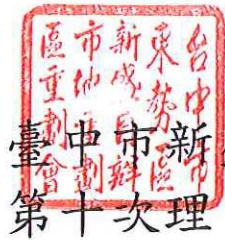 台中市
東勢區
新成自辦
市地重劃
區重劃會
臺中市新
第十次理